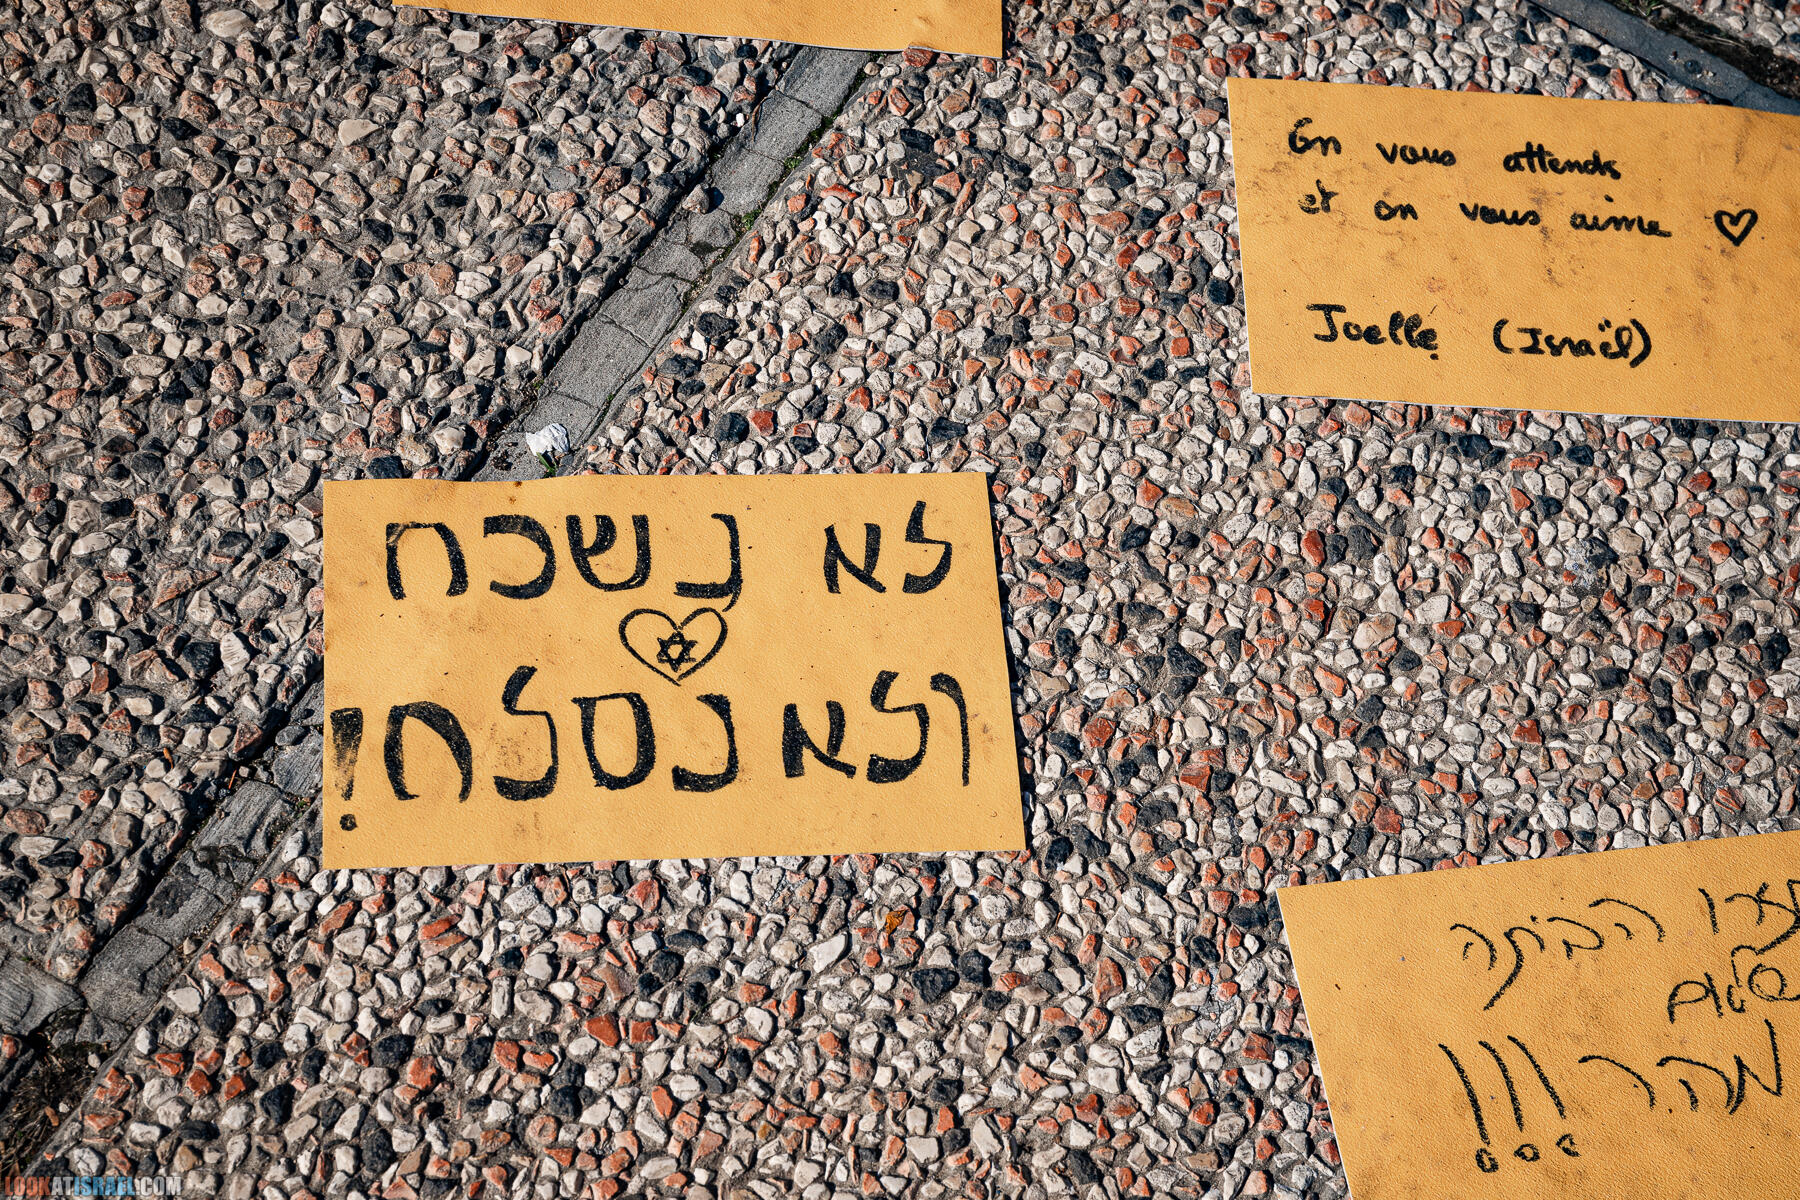 On vous attends
et on vous aime ♡
Joelle (Israël)
לא נשכח
ולא נסלח!
הביתה
בשלום
מהר !!!
LOOKATISRAEL.COM